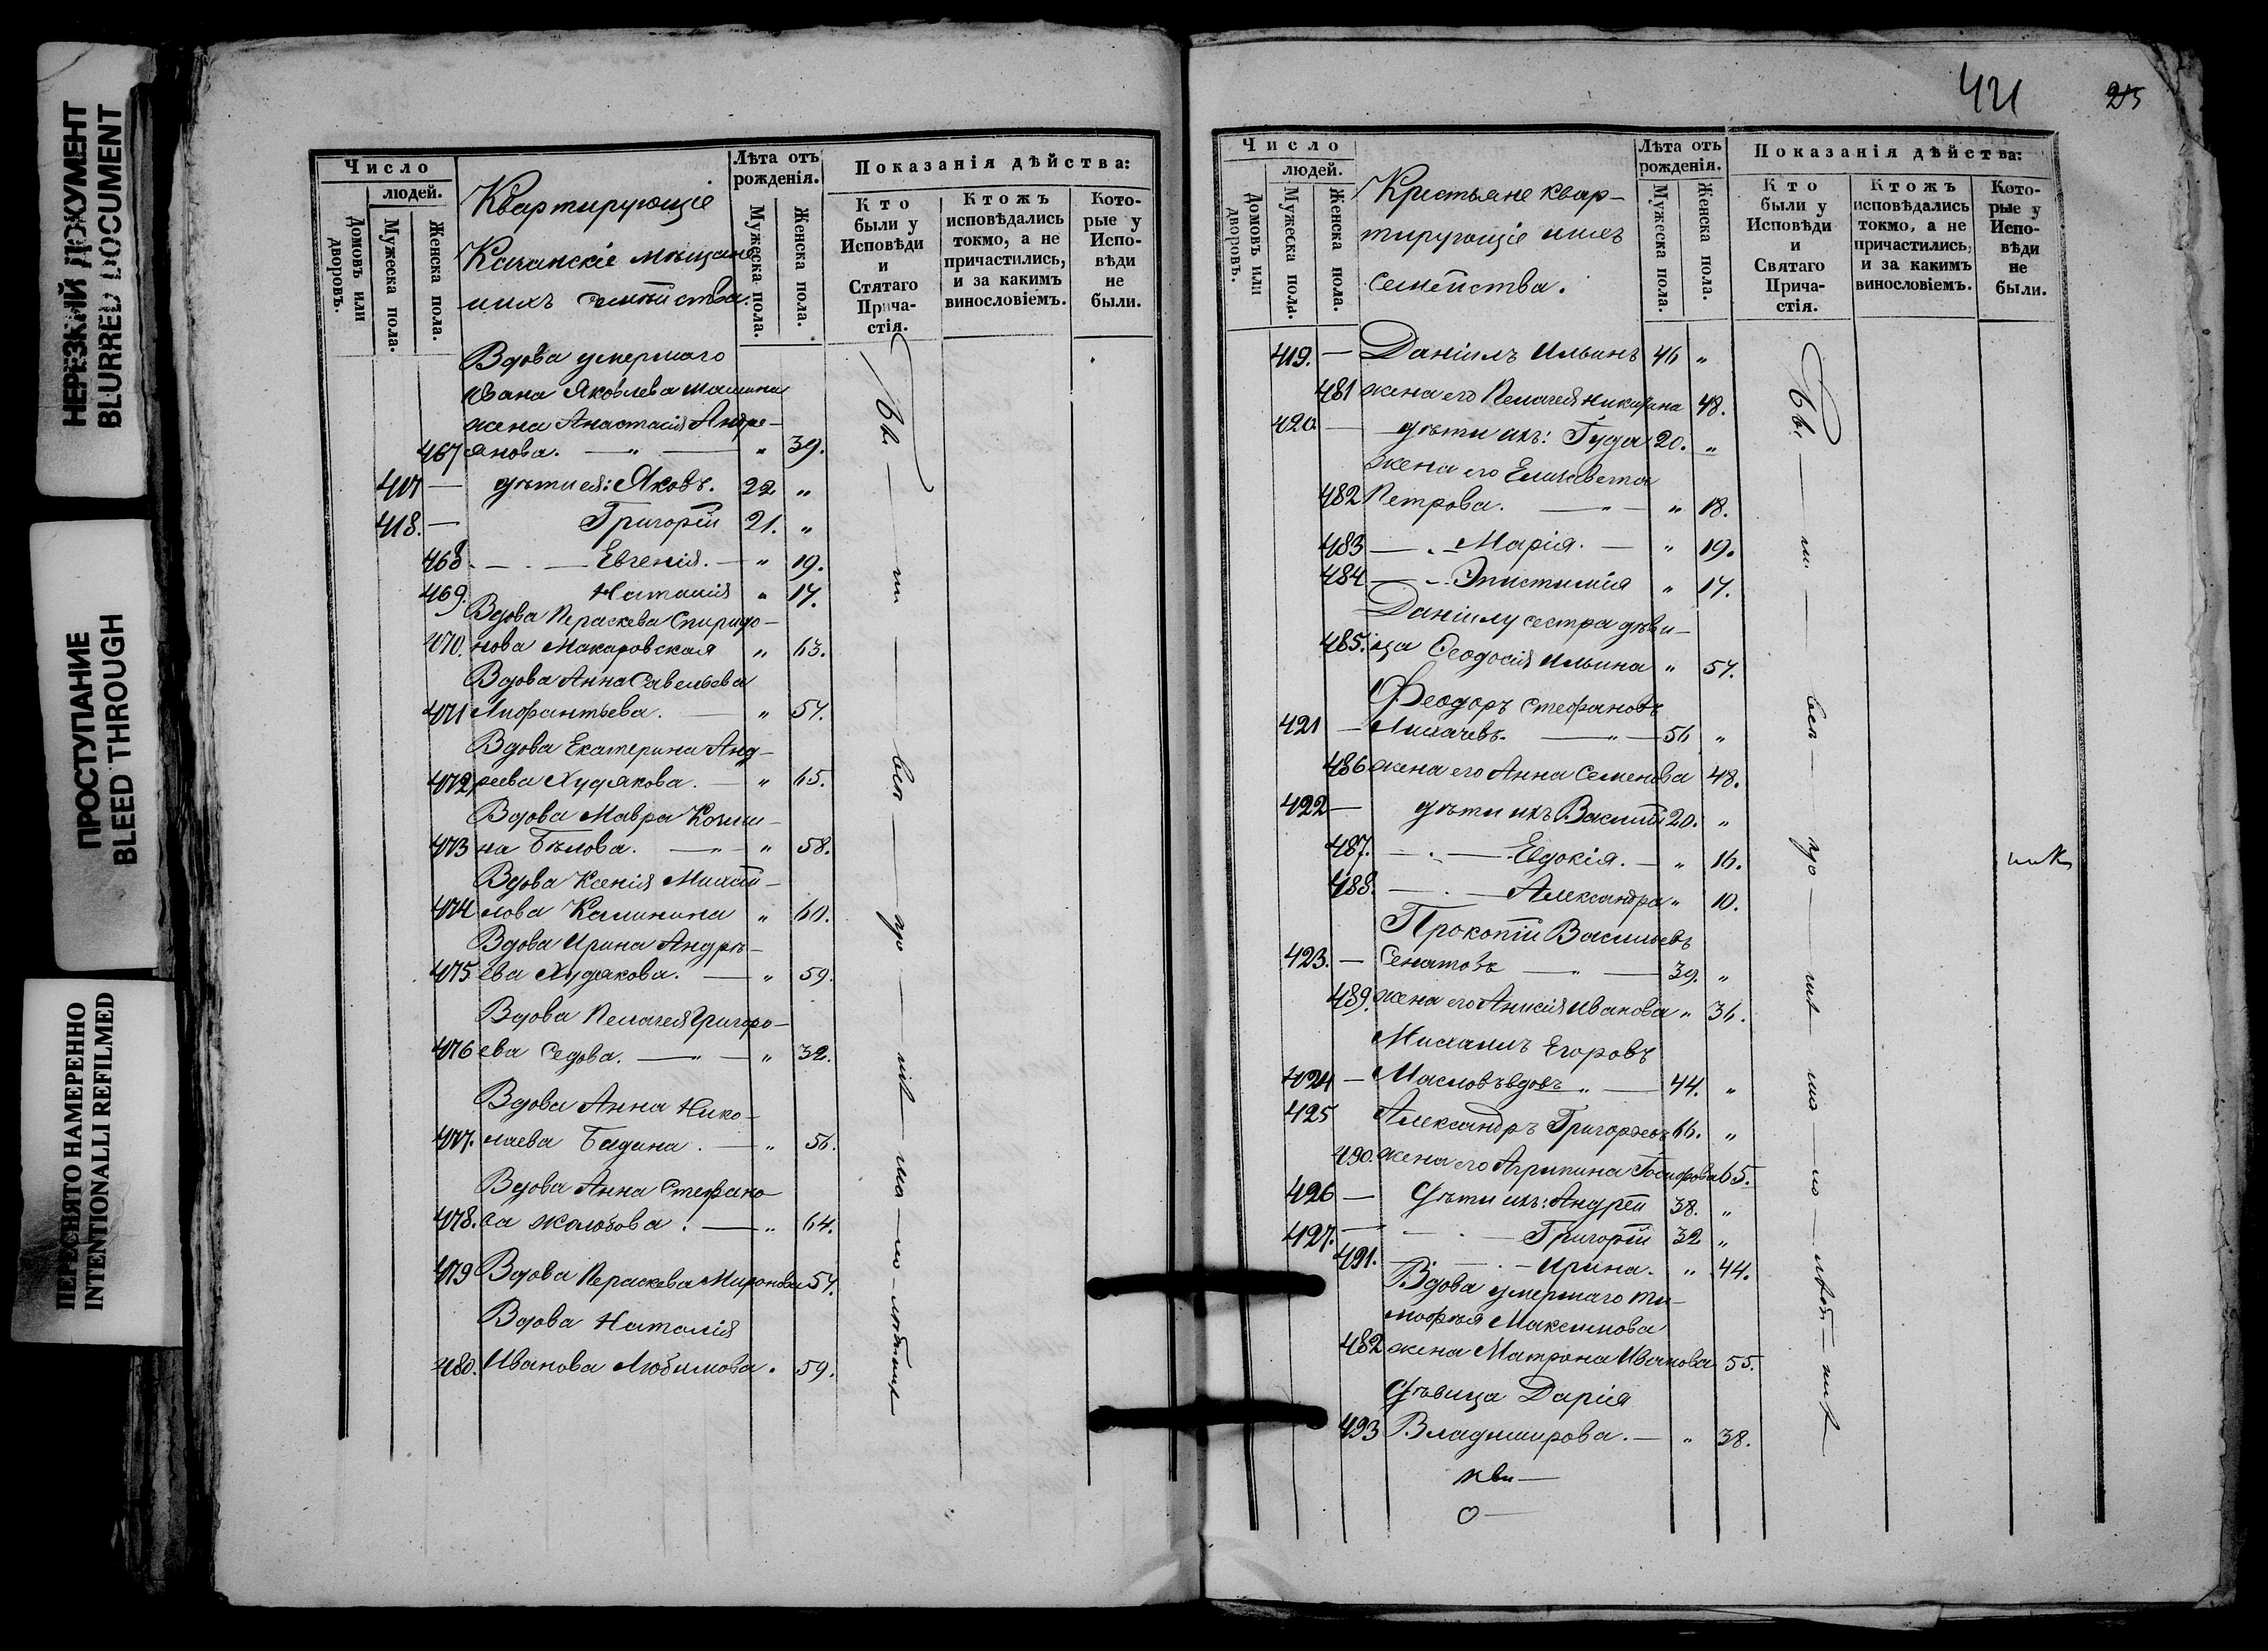 НЕРЕЗКИЙ ДОКУМЕНТ
BLURRED DOCUMENT
ПРОСТУПАНИЕ
BLEED THROUGH
ПЕРЕСНЯТО НАМЕРЕННО
INTENTIONALLI REFILMED
Число
людей.
Домовъ или дворовъ.
Мужеска пола.
Женска пола.
Квартирующіе
мѣщане
ихъ семейства.
Лѣта отъ рожденія.
Мужеска пола.
Женска пола.
Показанія дѣйства:
Кто были у Исповѣди и Стятаго Прича-стія.
Ктожъ исповѣдались токмо, а не причастились, и за какимъ винословіемъ.
Кото-рые у Испо-вѣди не были.
Вдова умершаго
Ивана Яковлева
жена Анастасія Андре-
467 янова. — " — " 39.
417 — дѣти ея: Яковъ. 22 "
418. — Григорій 21. "
468 — Евгенія. — " 19.
469. Наталія " 17.
Вдова Параскева Спиридо-
470. нова Макаровская " 63.
Вдова Анна Савельева
471 — " 57.
Вдова Екатерина Анд-
472 реева Худякова. — " 65.
Вдова Мавра Козми-
473 на Бѣлова. — " — " 58.
Вдова Ксенія Михай-
474 лова Калинина " 60.
Вдова Ирина Андрѣ-
475 ева Худякова. — " 59.
Вдова Пелагея Григорь-
476 ева Седова. — " — " 32.
Вдова Анна Нико-
477. лаева — " 56.
Вдова Анна Стефано-
478. ва Жолобова. — " 64.
479 Вдова Параскева Миронова 57.
Вдова Наталія
480. Иванова Любимова. 59.
421
25
Число
людей.
Домовъ или дворовъ.
Мужеска пола.
Женска пола.
Крестьяне квар-
тирующіе ихъ
семейства.
Лѣта отъ рожденія.
Мужеска пола.
Женска пола.
Показанія дѣйства:
Кто были у Исповѣди и Святаго Прича-стія.
Ктожъ исповѣдались токмо, а не причастились, и за какимъ винословіемъ.
Кото-рые у Испо-вѣди не были.
419. — Даніилъ Ильинъ 46 "
481 жена его Пелагея 48.
420 — дѣти ихъ: 20. "
жена его Елисавета
482 Петрова. — " — " 18.
483 — Марія. — " 19.
484 — Эпистимія " 17.
Даніилу сестра дѣви-
485. ца Ѳеодосія Ильина " 57.
Феодоръ Стефановъ
421 — Лихачевъ. — " — 56 "
486 жена его Анна Семенова 48.
422 — дѣти ихъ Василій 20. "
487. — Евдокія. — " 16.
488. — Александра " 10.
Прокопій Васильевъ
423. — Сенатовъ — " — 39. "
489. жена его Анисія Иванова " 36.
Михаилъ Егоровъ
424 — Масловъ вдовъ " — 44. "
425 Александръ Григорьевъ 66. "
490. жена его Агрипина Іосифова 65.
426 — Дѣти ихъ: Андрей 38. "
427. — Григорій 32 "
491. — Ирина. " 44.
Вдова умершаго Ти-
мофѣя Максимова
482 жена Матрона Иванова 55.
Дѣвица Дарія
493 Владимирова. — " 38.